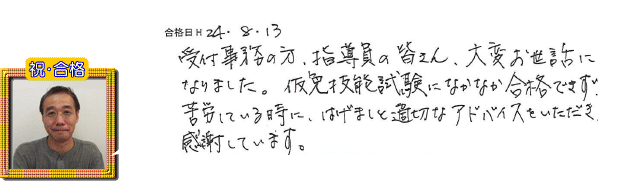 合格日 H 24・8・13
祝・合格
受付事務の方、指導員の皆さん、大変お世話に
なりました。仮免技能試験になかなか合格できず
苦労している時に、はげましと適切なアドバイスをいただき
感謝しています。